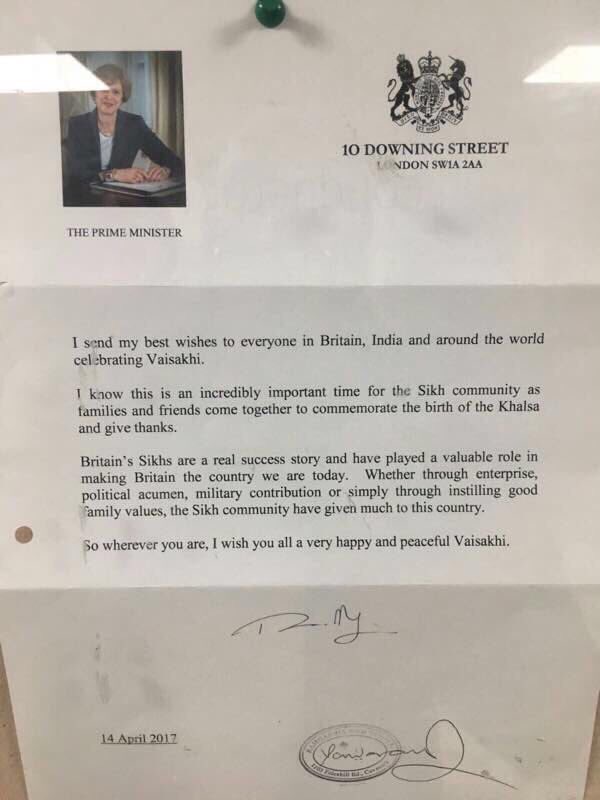 10 DOWNING STREET
LONDON SW1A 2AA
THE PRIME MINISTER
I send my best wishes to everyone in Britain, India and around the world
celebrating Vaisakhi.
I know this is an incredibly important time for the Sikh community as
families and friends come together to commemorate the birth of the Khalsa
and give thanks.
Britain's Sikhs are a real success story and have played a valuable role in
making Britain the country we are today. Whether through enterprise,
political acumen, military contribution or simply through instilling good
family values, the Sikh community have given much to this country.
So wherever you are, I wish you all a very happy and peaceful Vaisakhi.
14 April 2017